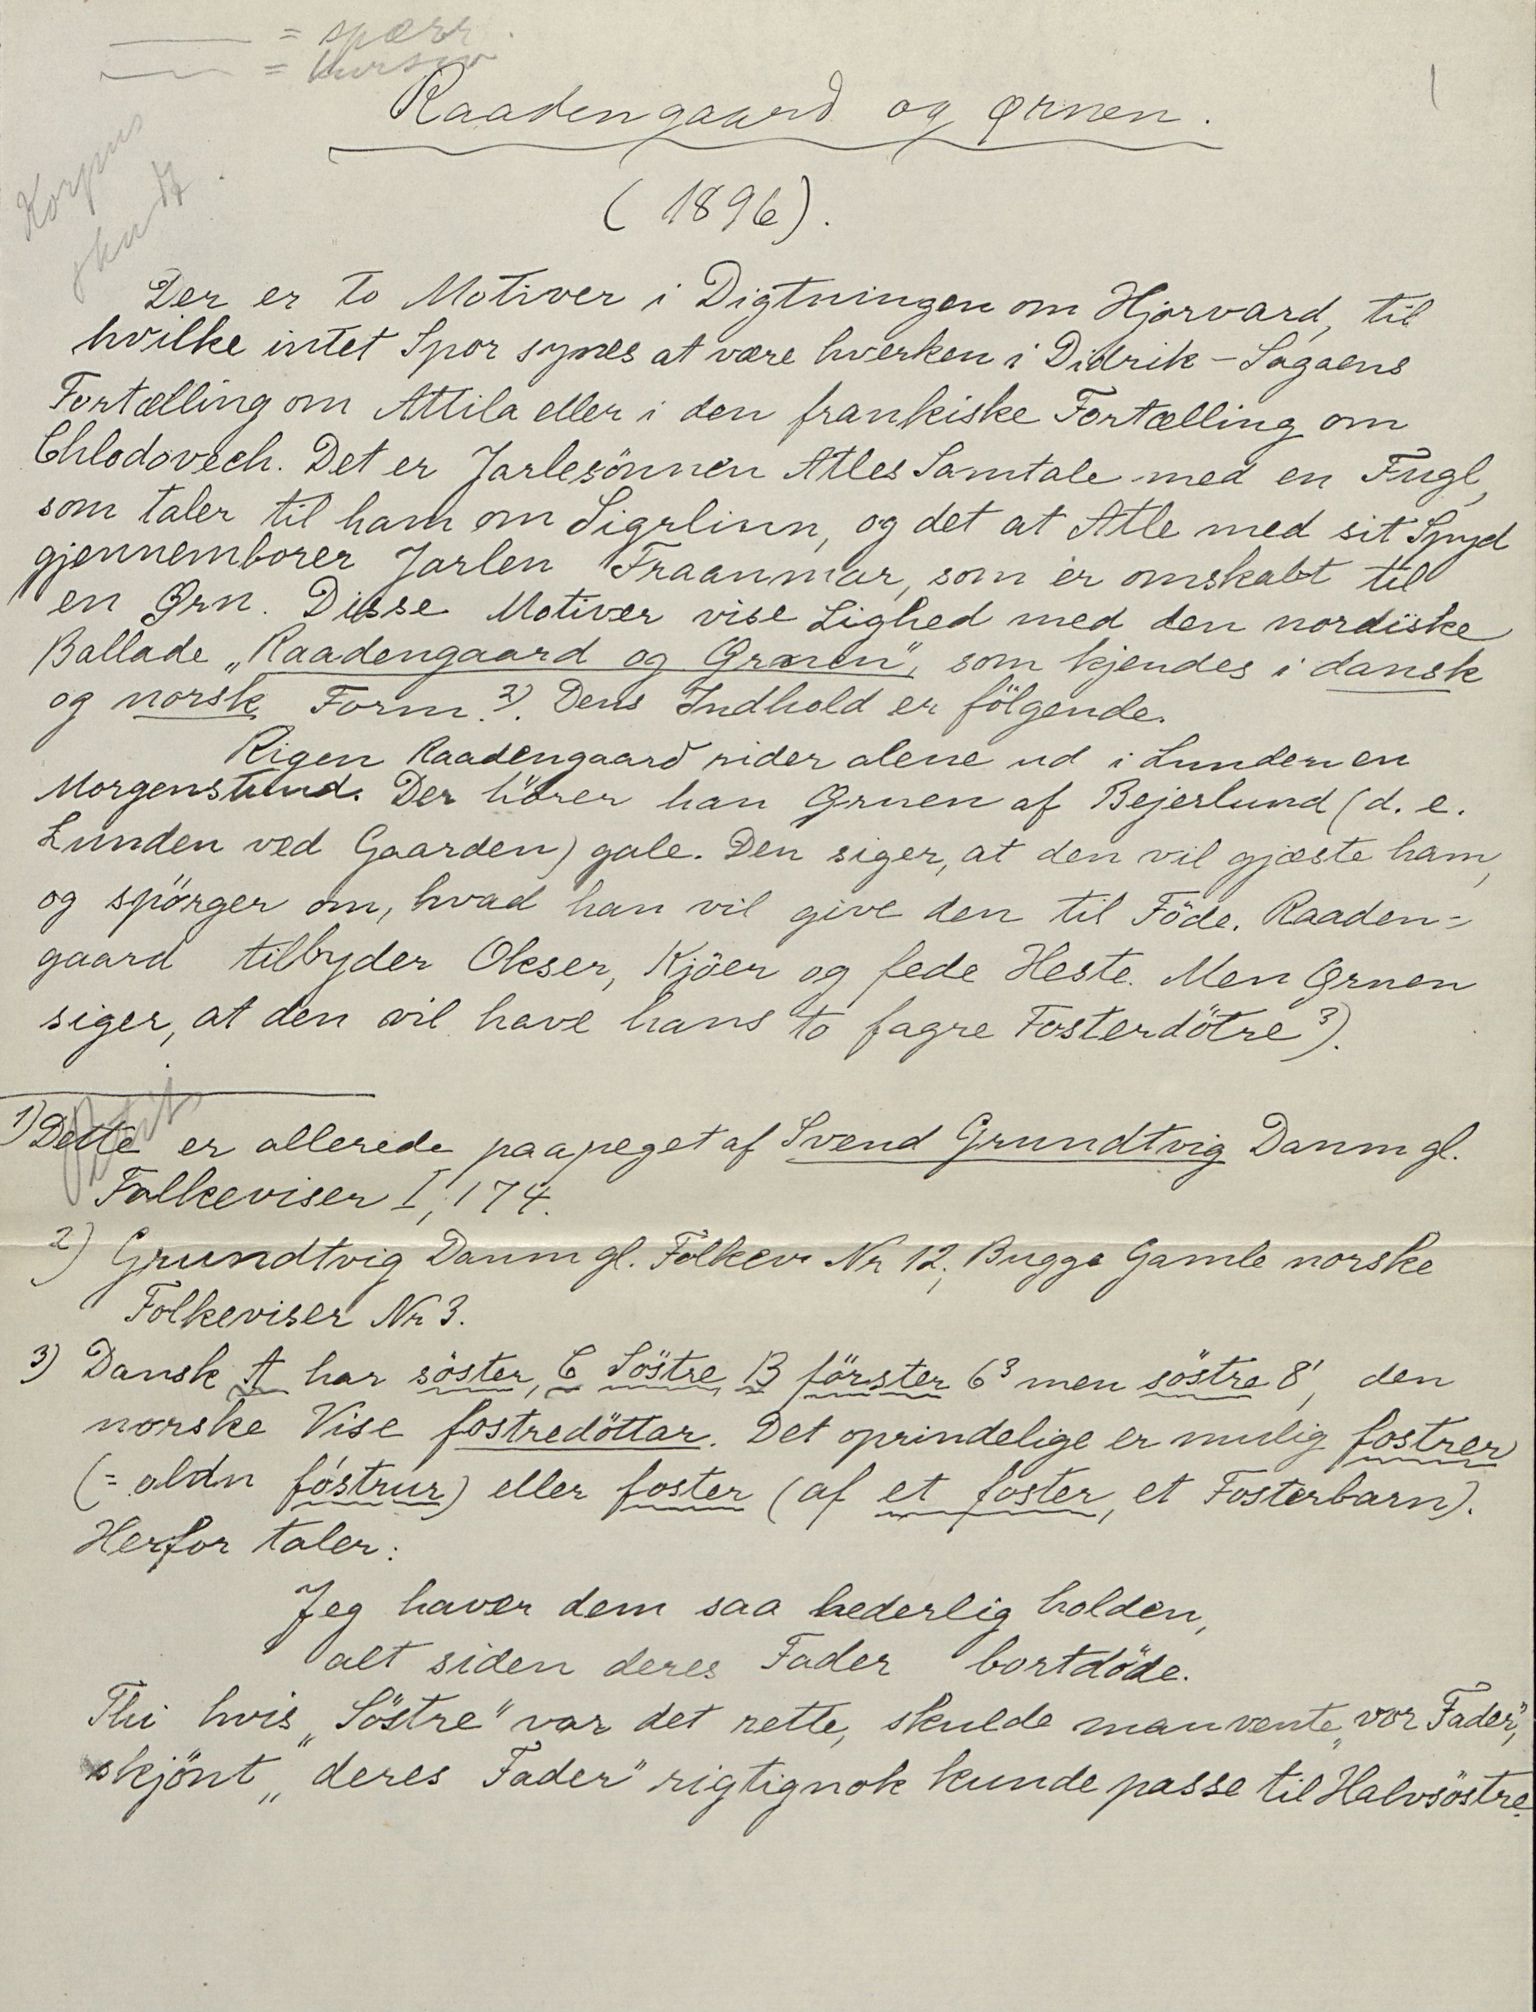 = sperr.
= kursiv
1
Korpus
skudt.
Raadengaard og Ørnen.
(1896).
Der er to Motiver i Digtningen om Hjørvard, til
hvilke intet Spor synes at være hverken i Didrik-Sagaens
Fortælling om Attila eller i den frankiske Fortælling om
Chlodovech. Det er Jarlesönnen Atles Samtale med en Fugl,
som taler til ham om Sigrlinn, og det at Atle med sit Spyd
gjennemborer Jarlen Fraanmar, som er omskabt til
en Ørn. Disse Motiver vise Lighed med den nordiske
Ballade „Raadengaard og Ørnen", som kjendes i dansk
og norsk Form.2). Dens Indhold er fölgende.
Rigen Raadengaard rider alene ud i Lunden en
Morgenstund. Der hörer han Ørnen af Bejerlund (d. e.
Lunden ved Gaarden) gale. Den siger, at den vil gjæste ham,
og spörger om, hvad han vil give den til Föde. Raaden-
gaard tilbyder Okser, Kjöer og fede Heste. Men Ørnen
siger, at den vil have hans to fagre Fosterdötre3).
Petit
1) Dette er allerede paapeget af Svend Grundtvig Danm gl.
Folkeviser I, 174.
2) Grundtvig Danm gl. Folkev Nr 12; Bugge Gamle norske
Folkeviser Nr 3.
3) Dansk A har söster, C Söstre, B förster 6³ men söstre 8¹, den
norske Vise fostredöttar. Det oprindelige er mulig fostrer
(= oldn fóstrur) eller foster (af et foster, et Fosterbarn).
Herfor taler:
Jeg haver dem saa hederlig holden,
alt siden deres Fader bortdöde.
Thi hvis „Söstre" var det rette, skulde man vente „vor Fader",
skjönt „deres Fader" rigtignok kunde passe til Halvsöstre.